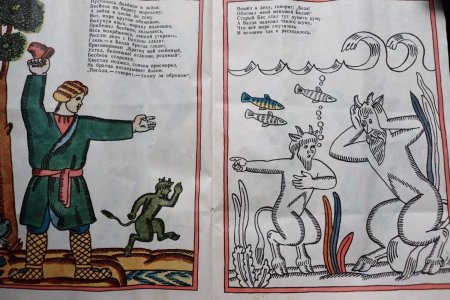 Пустились бесёнок и зайка:
Бесёнок по берегу морскому,
А зайка в лесок до дому.
Вот, море кругом обежавши,
Высунув язык, мордку поднявши,
Прибежал бесёнок, задыхаясь,
Весь мокрёшенек, лапкой утираясь,
Мысля: дело с Балдою сладит.
Глядь — а Балда братца гладит,
Приговаривая: «Братец мой любимый,
Устал, бедняжка! отдохни, родимый».
Бесёнок оторопел,
Хвостик поджал, совсем присмирел,
На братца поглядывает боком.
«Погоди,— говорит,— схожу за оброком».
Пошёл к деду, говорит: «Беда!
Обогнал меня меньшой Балда!»
Старый Бес стал тут думать думу.
А Балда наделал такого шуму,
Что всё море смутилось
И волнами так и расходилось.